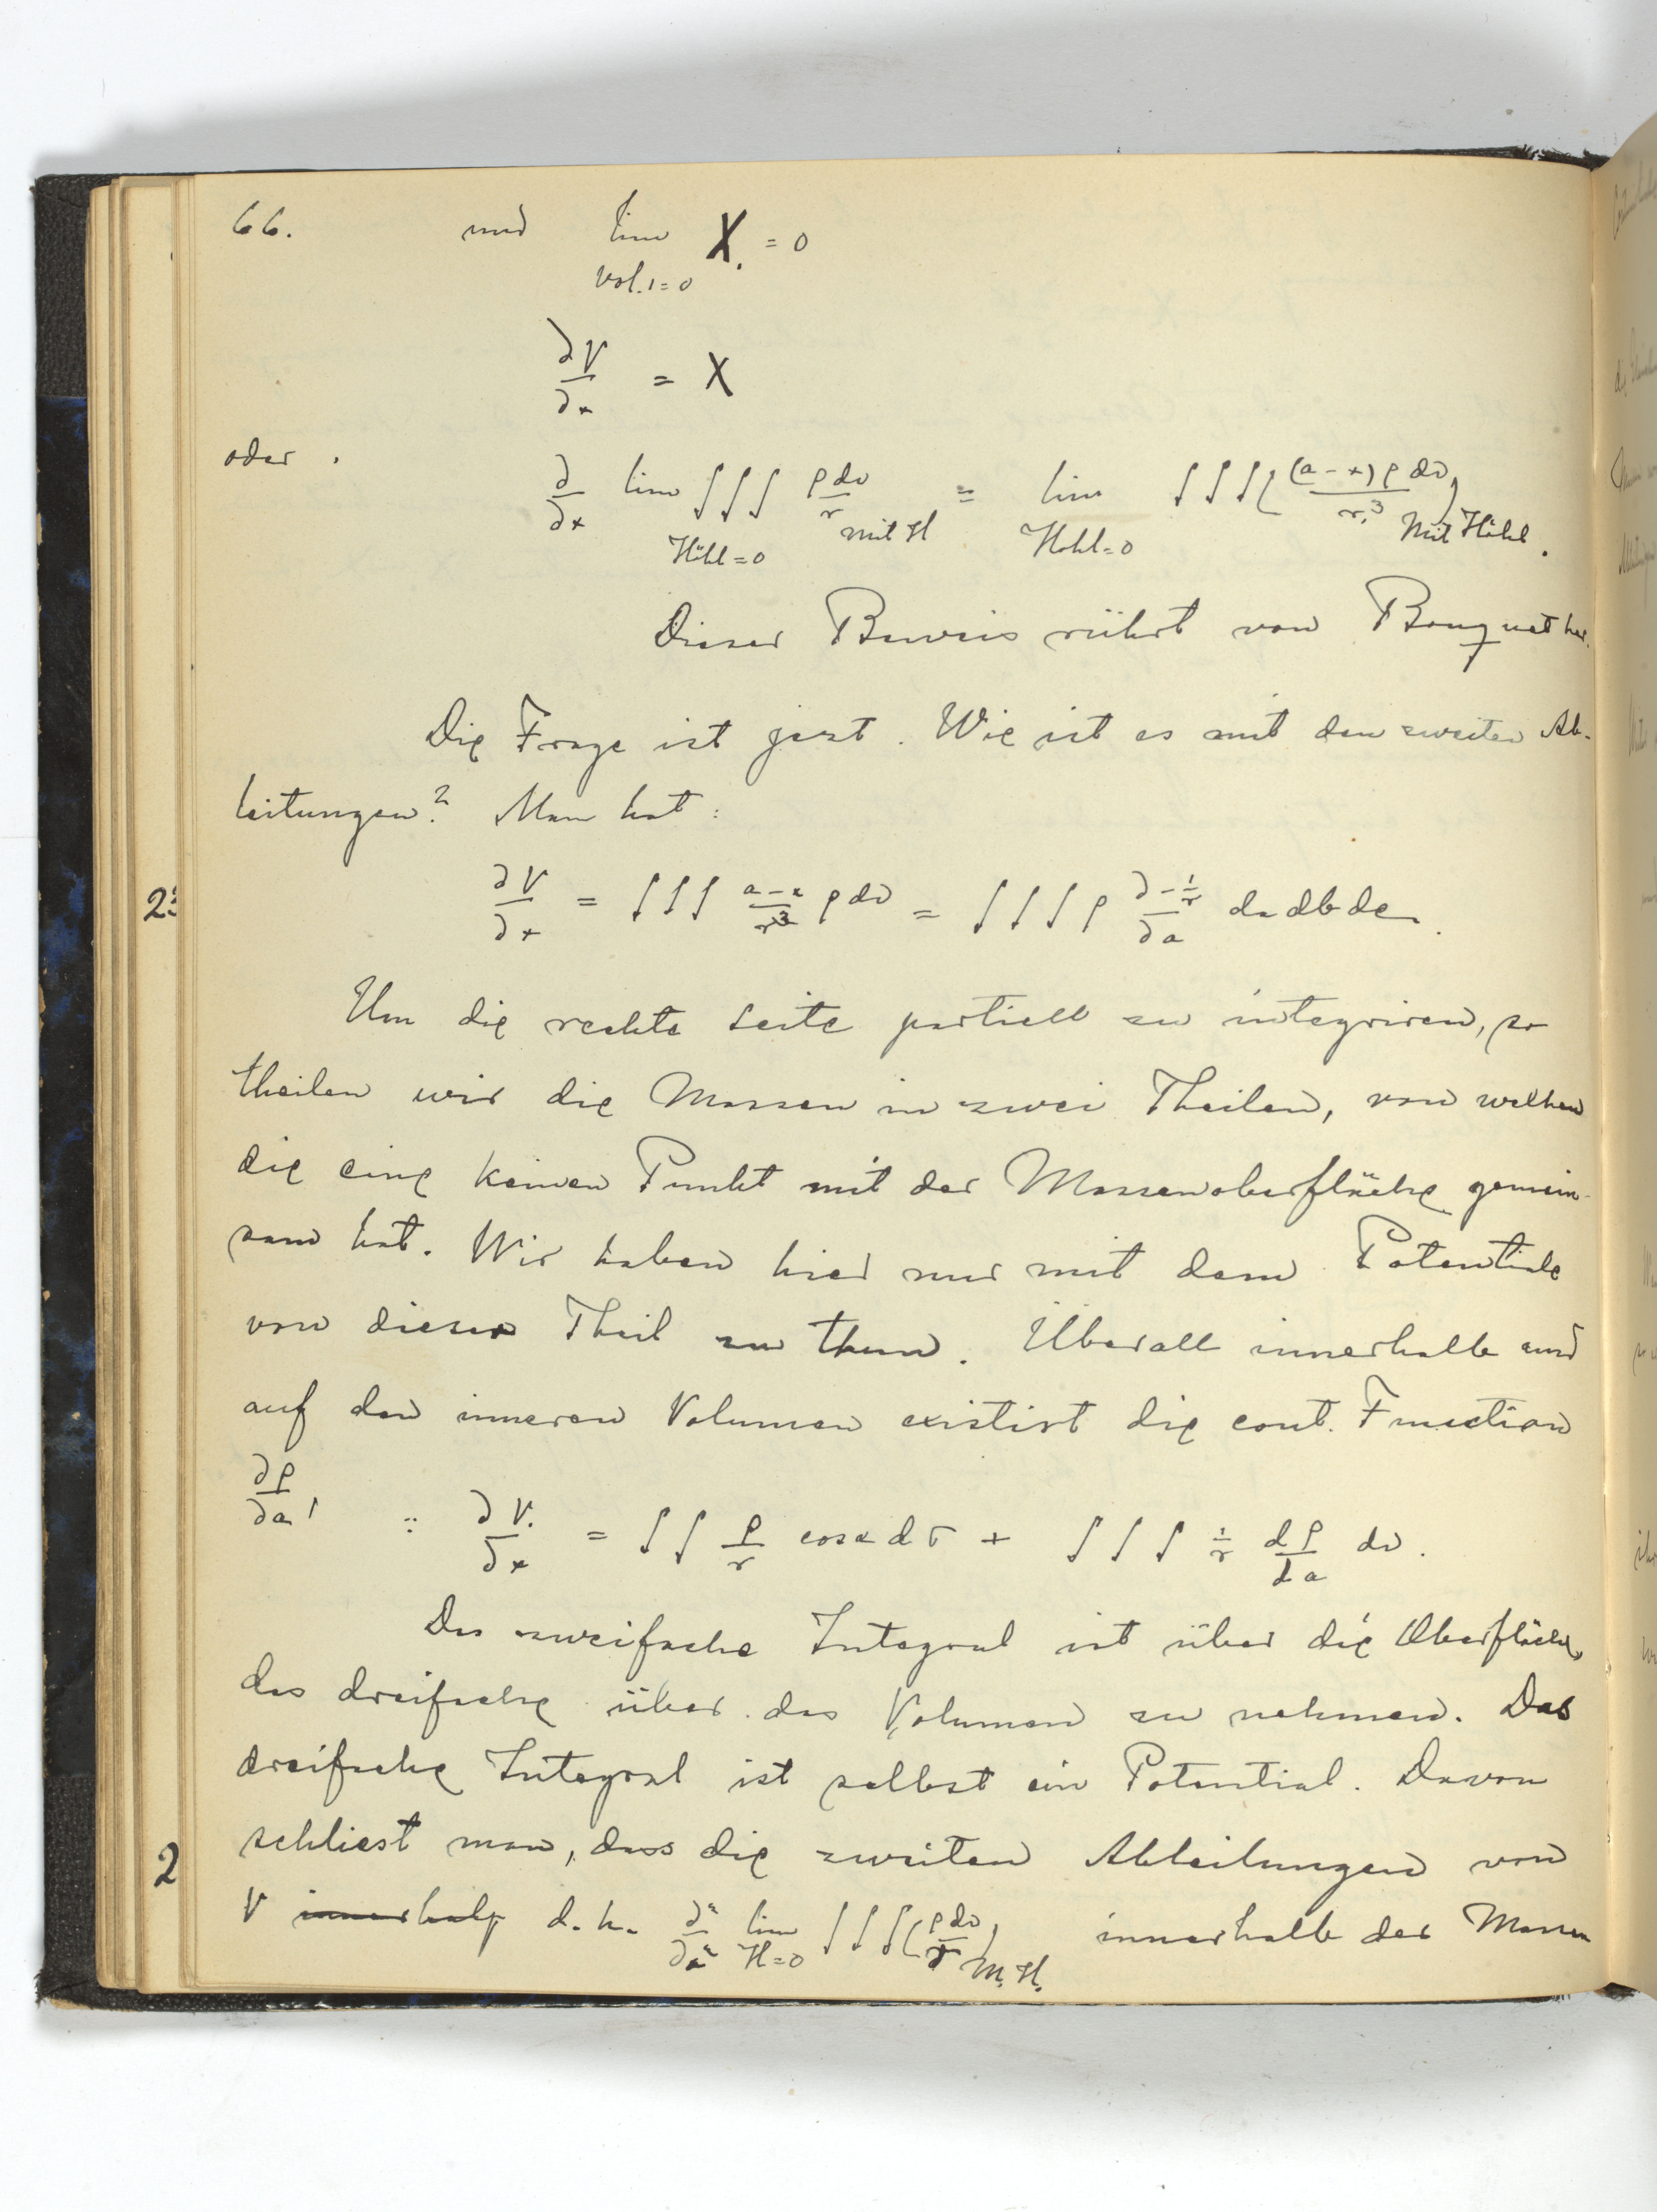 66. und lim X. = 0
vol.1=0
∂V/∂x = X
oder
∂/∂x lim ∫∫∫ ρdv/r mit H = lim ∫∫∫((a-x)ρdv/r³) Mit Höhl.
Höhl=0 Hohl=0
Dieser Beweis rührt von Bouquet her.
Die Frage ist jezt. Wie ist es mit den zweiten Ab-
leitungen? Man hat:
23
∂V/∂x = ∫∫∫ a-x/r³ ρdv = ∫∫∫ρ ∂-1/r/∂a da db dc.
Um die rechte Seite partiell zu integriren, so
theilen wir die Massen in zwei Theilen, von welchen
die eine keinen Punkt mit der Massenoberfläche gemein-
sam hat. Wir haben hier nur mit dem Potentiale
von dieser Theil zu thun. Überall innerhalb und
auf den inneren Volumen existirt die cont. Function
∂ρ/∂a, ∴ ∂V./∂x = ∫∫ ρ/r cosα dσ + ∫∫∫ 1/r dρ/da dv.
Das zweifache Integral ist über die Oberfläche,
das dreifache über das Volumen zu nehmen. Das
dreifache Integral ist selbst ein Potential. Davon
schliest man, dass die zweiten Ableitungen von
2
V innerhalb d.h. ∂²/∂x² lim H=0 ∫∫∫(ρdv/r) M.H. innerhalb der Massen